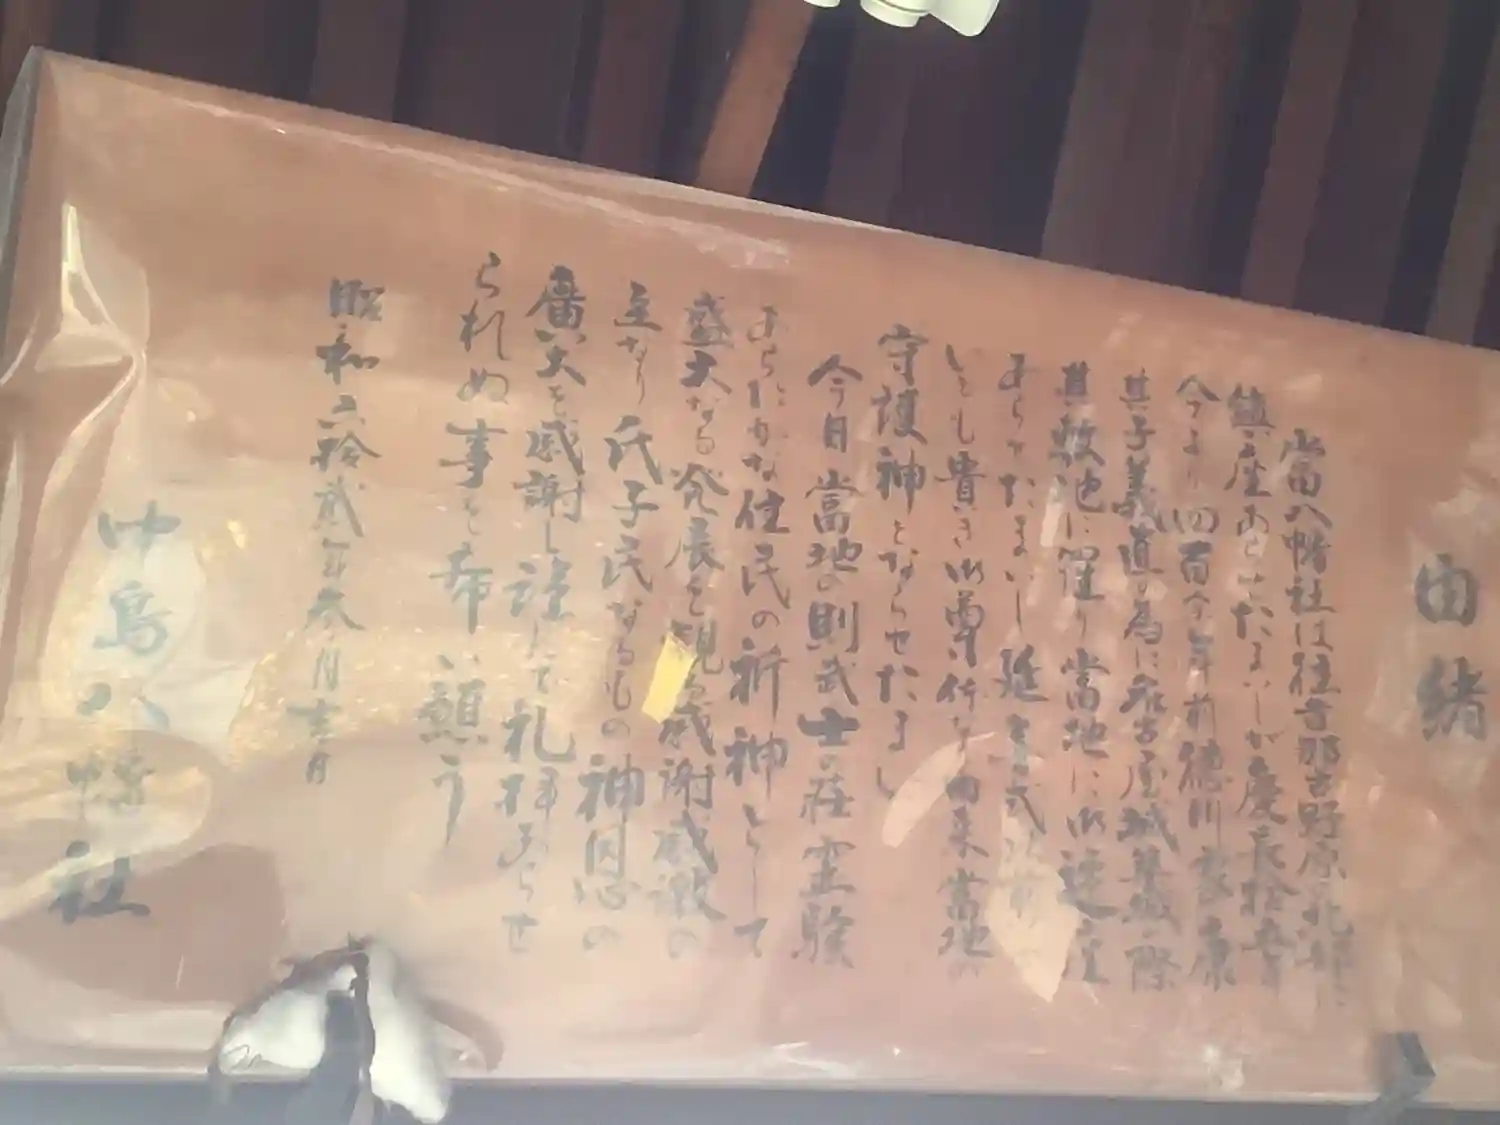 由緒
當八幡社は往古那古野原北部に
鎮座あらたまいしが慶長拾五年
今より四百余年前徳川家康
其子義直の為に名古屋城築城の際
其敷地に罹り當地に御遷座
あらせたまいし延喜式以前
いとも貴き御尊体な由来當地の
守護神とならせたまし
今日當地の則武士の荘霊験
あらたかな住民の祈神として
盛大なる発展を観る感謝感激の
至なり氏子民なるもの神恩の
廣大を感謝し謹にて礼拝あらせ
られぬ事を希い願う
昭和六拾貳年参月吉日
中島八幡社